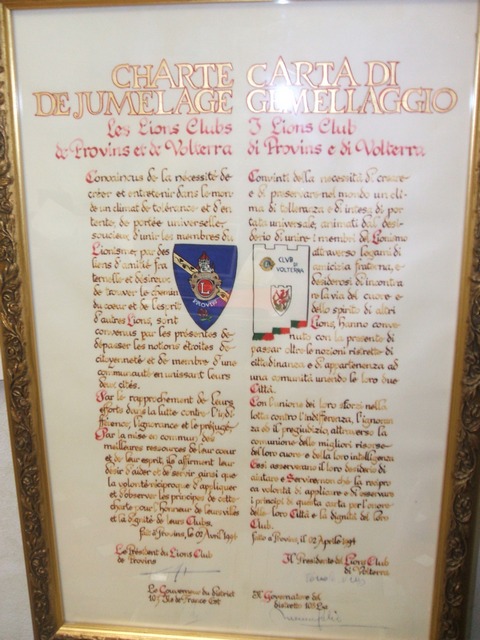 CHARTE
DE JUMELAGE
Les Lions Clubs
de Provins et de Volterra
Convaincus de la nécessité de
créer et entretenir dans le mon-
de un climat de tolérance et d'en
tente, de portée universelle,
soucieux d'unir les membres du
Lionisme, par des
liens d'amitié fra
ternelle et désireux
de trouver le chemin
du coeur et de l'esprit
d'autres Lions, sont
convenus par les présentes de
dépasser les notions étroites de
citoyenneté et de membre d'une
communauté en unissant leurs
deux cités.
Par le rapprochement de leurs
efforts dans la lutte contre l'indif
férence, l'ignorance et le préjugé
Par la mise en commun des
meilleures ressources de leur coeur
et de leur esprit, ils affirment leur
désir d'aider et de servir ainsi que
la volonté réciproque d'appliquer
et d'observer les principes de cette
charte pour l'honneur de leurs villes
et la dignité de leurs Clubs.
fait à Provins, le 02 Avril 1994
Le Président du Lions Club
de Provins
Le Gouverneur du District
103 Ile de France Est
L
PROVINS
CARTA DI
GEMELLAGGIO
I Lions Club
di Provins e di Volterra
Convinti della necessità di creare
e di preservare nel mondo un cli
ma di tolleranza e di intesa di por
tata universale, animati dal desi
derio di unire i membri del Lionismo
attraverso legami di
amicizia fraterna, e
desiderosi di incontra
re la via del cuore e
dello spirito di altri
Lions, hanno conve
nuto con la presente di
passar oltre le nozioni ristrette di
cittadinanza e di appartenenza ad
una comunità unendo le loro due
Città.
Con l'unione dei loro sforzi nella
lotta contro l'indifferenza, l'ignoran
za ed il pregiudizio, attraverso la
comunione delle migliori risorse
del loro cuore e della loro intelligenza
Essi asseverano il loro desiderio di
aiutare e Servire non ché la recipro
ca volontà di applicare e di osservare
i principi di questa carta per l'onore
delle loro Città e la dignità del loro
Club.
fatto a Provins, il 02 Aprile 1994
Il Presidente del Lions Club
di Volterra
Il Governatore del
distretto 108 La
CLUB
DI
VOLTERRA